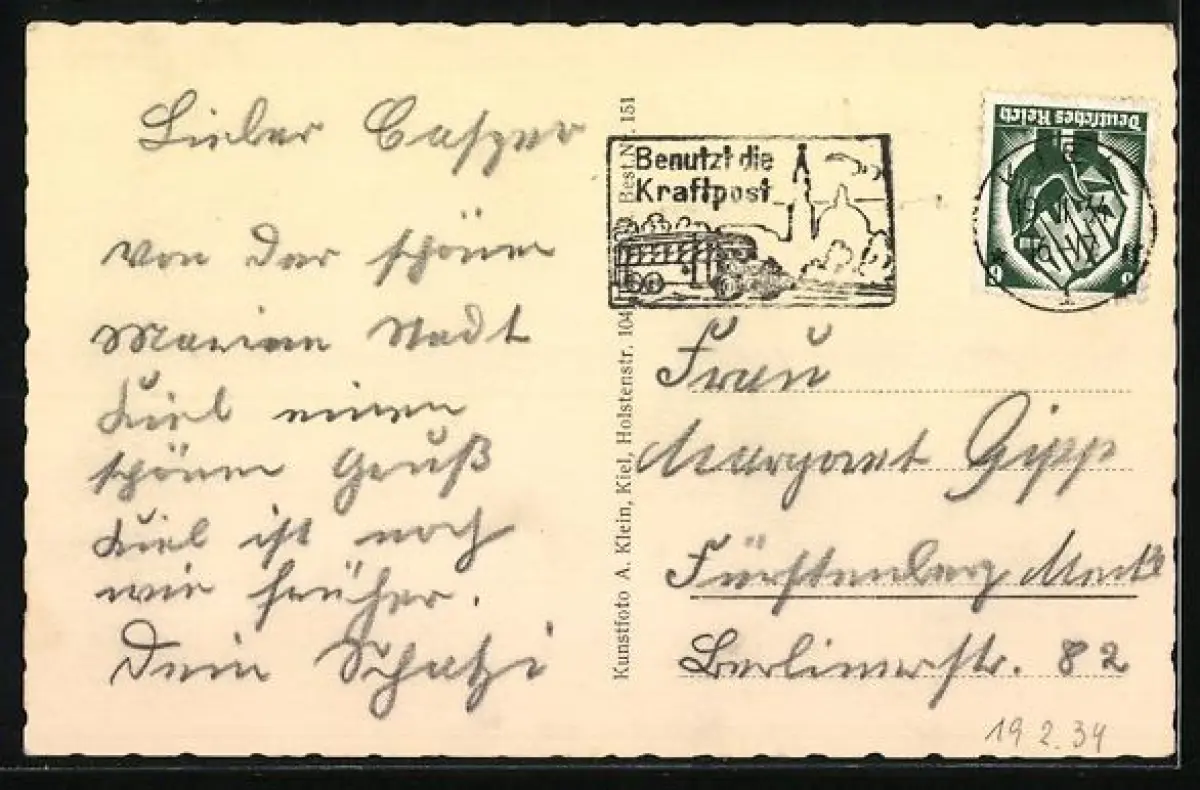 Lieber Casper
Von der schönen
Marine Stadt
Kiel einen
schönen Gruß
Kiel ist noch
wie früher.
Dein Schatzi
Kunstfoto A. Klein, Kiel, Holstenstr. 104 Best.Nr. 151
Benutzt die
Kraftpost
Deutsches Reich
6 6
19 VI 34
Frau
Margaret Gipp
Fürstenberg Meckl
Berlinerstr. 82
19 2. 34